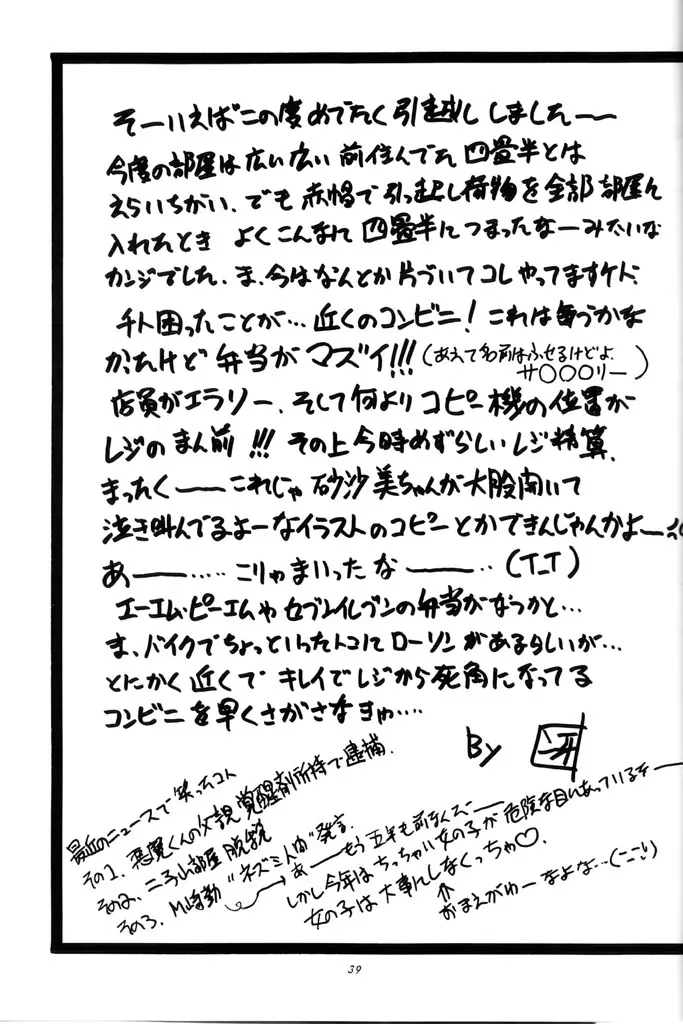 そーいえばこの度めでたく引越ししました――
今度の部屋は広い広い前住んでた四畳半とは
えらいちがい、でも赤帽で引っ越し荷物を全部部屋ん
入れたとき よくこんなに四畳半につまったなーみたいな
カンジでした、ま、今はなんとか片づいてコレやってますケド、
チト困ったことが…近くのコンビニ!これは毎うかな
かったけど弁当がマズイ!!!(あえて名前はふせるけどよ、
サ〇〇〇リー)
店員がエラソー、そして何よりコピー機の位置が
レジのまん前!!!その上今時めずらしいレジ精算、
まったく――これじゃ砂沙美ちゃんが大股開いて
泣き叫んでるよーなイラストのコピーとかできんじゃんかよ――
あ――……こりゃまいったな――‥(T_T)
エーエム・ピーエムやセブンイレブンの弁当がなつかし…
ま、バイクでちょっといったトコにローソンがあるらしいが…
とにかく近くでキレイでレジから死角になってる
コンビニを早くさがさなきゃ…
By
最近のニュースで笑ったコト
その1、悪魔くんの父親覚醒剤所持で逮捕、
その2、二子山部屋脱税
その3、M崎勤"ネズミ人間"発言、
→あ――もう五年も前なんだ――
しかし今年はちっちゃい女の子が危険な目にあっているな――
女の子は大事にしなくっちゃ♡
⇑
おまえがゆーなよな…(ここ)
39